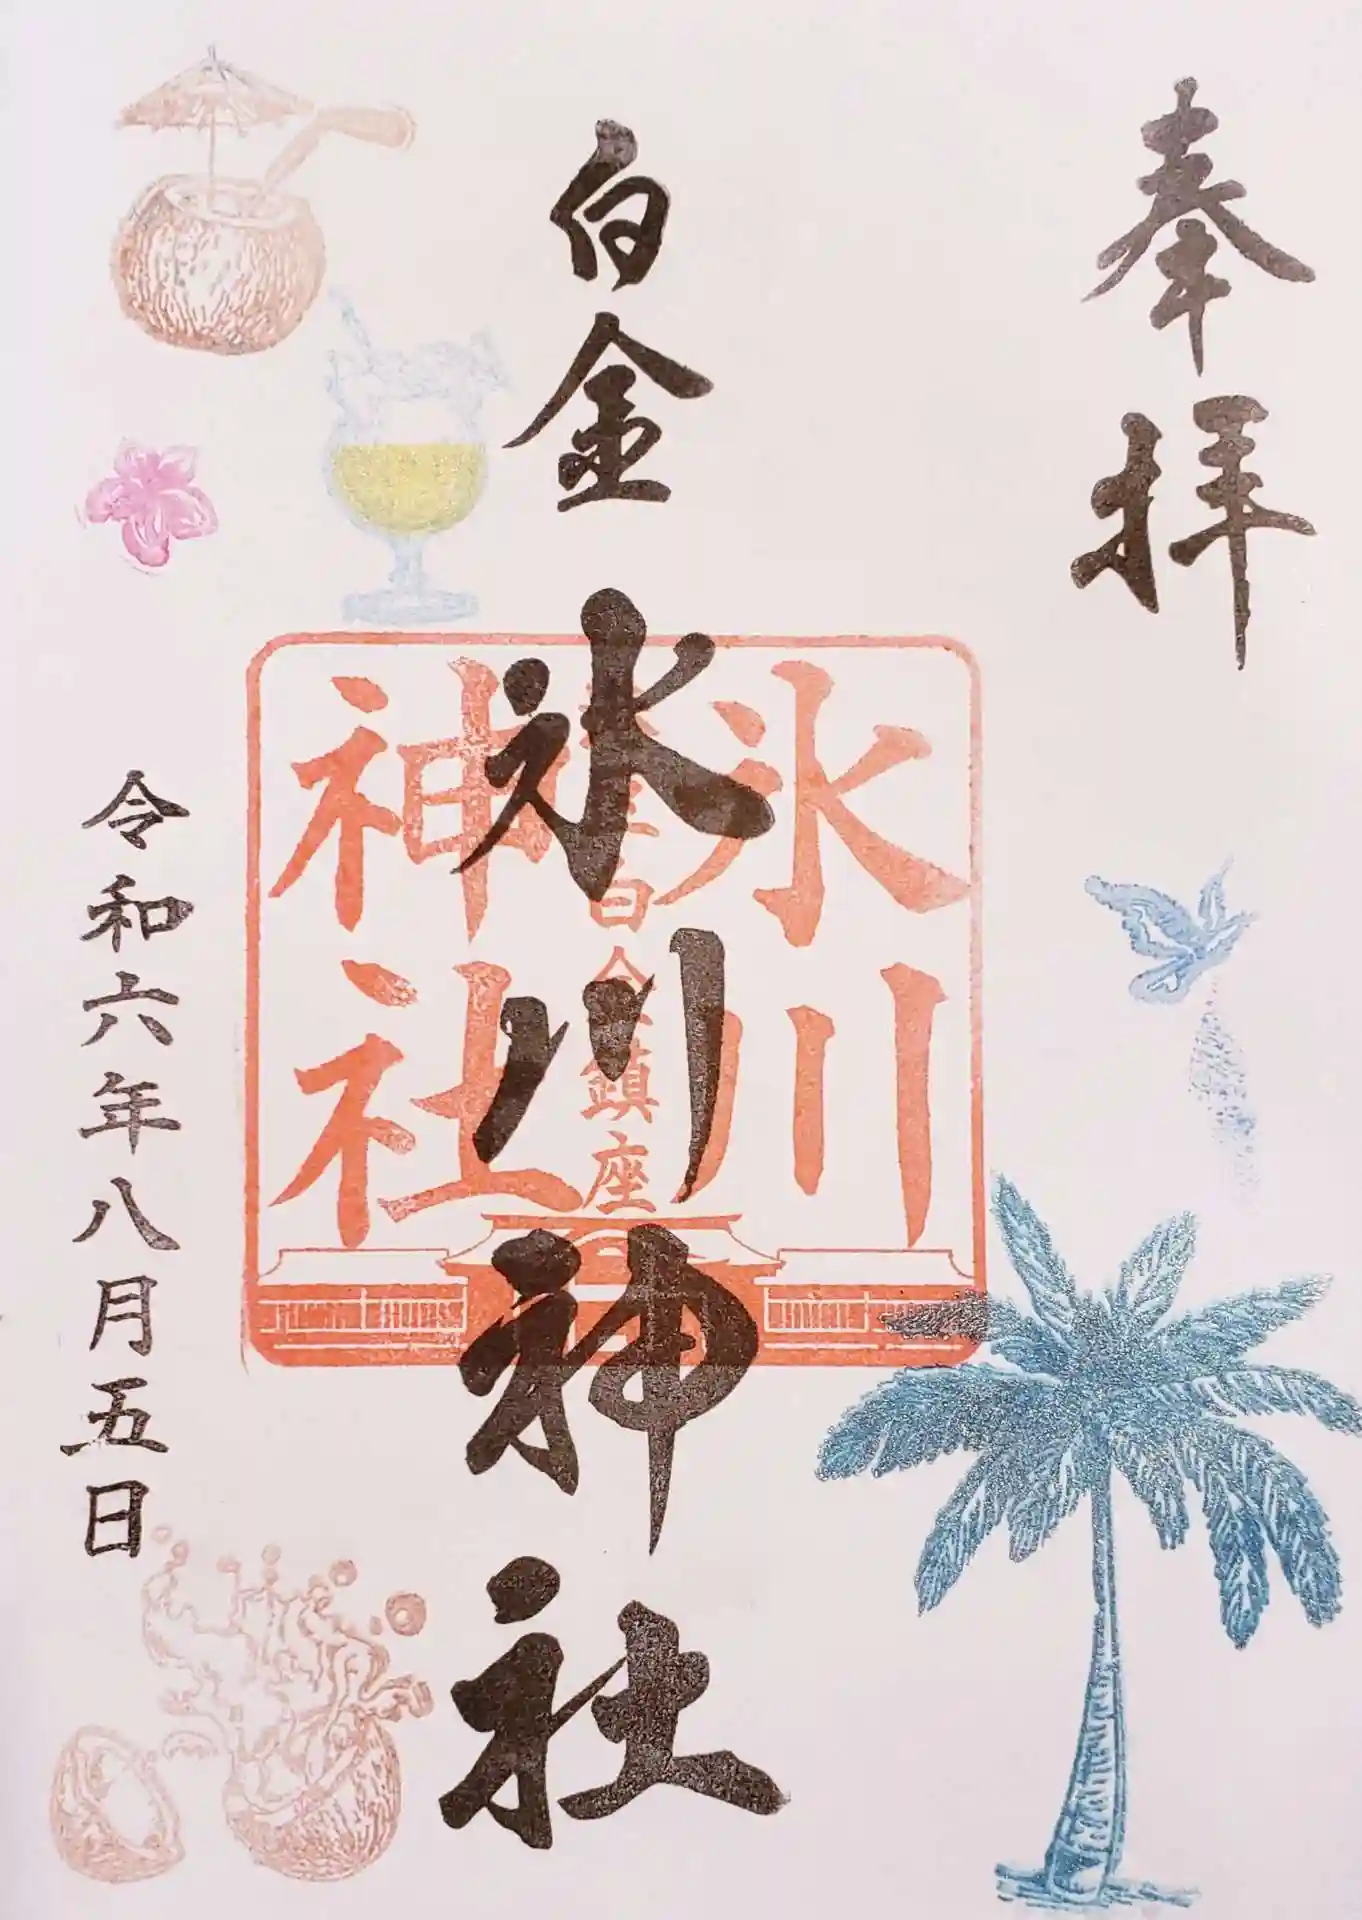 奉拝
白金
氷川神社
氷川
神社
白金鎮座
令和六年八月五日